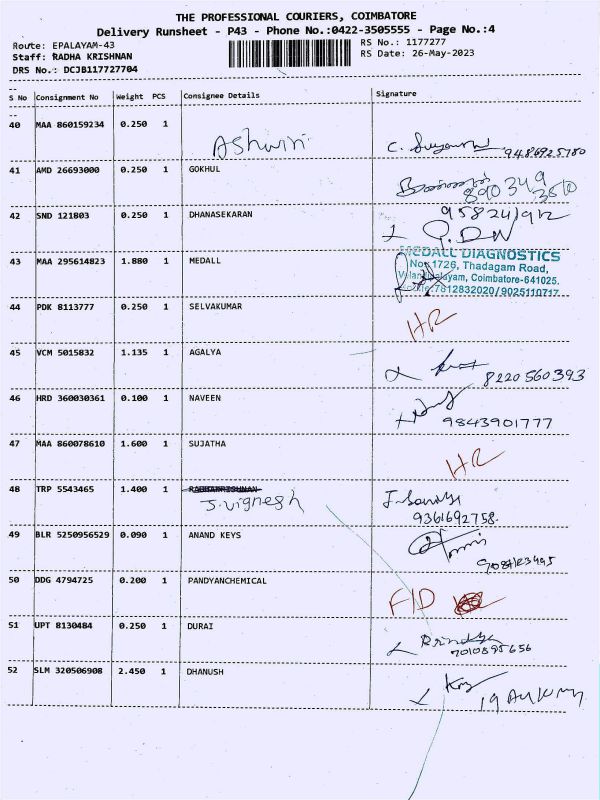 THE PROFESSIONAL COURIERS, COIMBATORE
Delivery Runsheet - P43 - Phone No.:0422-3505555 - Page No.:4
Route: EPALAYAM-43
RS No.: 1177277
Staff: RADHA KRISHNAN
RS Date: 26-May-2023
DRS No.: DCJB117727704
S No Consignment No Weight PCS Consignee Details Signature
40 MAA 860159234 0.250 1 Ashwin
41 AMD 26693000 0.250 1 GOKHUL
890 349 3510
42 SND 121803 0.250 1 DHANASEKARAN
43 MAA 295614823 1.880 1 MEDALL
MEDALL DIAGNOSTICS
No.1726, Thadagam Road,
Coimbatore-641025.
7812832020/9025110717
44 PDK 8113777 0.250 1 SELVAKUMAR
HR
45 VCM 5015832 1.135 1 AGALYA
8220560393
46 HRD 360030361 0.100 1 NAVEEN
9843901777
47 MAA 860078610 1.600 1 SUJATHA
HR
48 TRP 5543465 1.400 1
J.vignesh
9361692758.
49 BLR 5250956529 0.090 1 ANAND KEYS
50 DDG 4794725 0.200 1 PANDYANCHEMICAL
F/D
51 UPT 8130484 0.250 1 DURAI
7010895656
52 SLM 320506908 2.450 1 DHANUSH